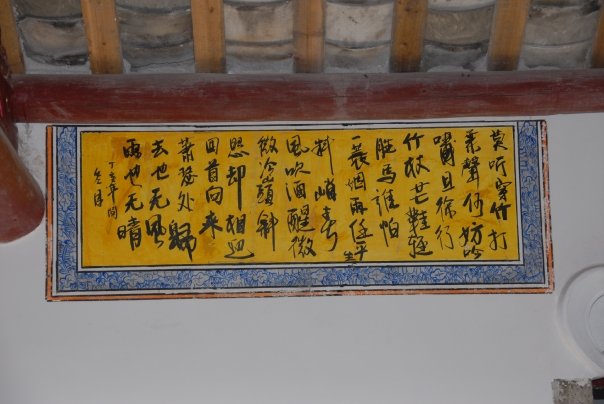 莫听穿竹打
葉聲何妨吟
嘯且徐行
竹杖芒鞋轻
胜馬誰怕
一蓑烟雨任平生
料峭春
風吹酒醒微
微冷山頭斜
照却相迎
回首向来
萧瑟处歸
去也无風
雨也无晴
丁亥年间